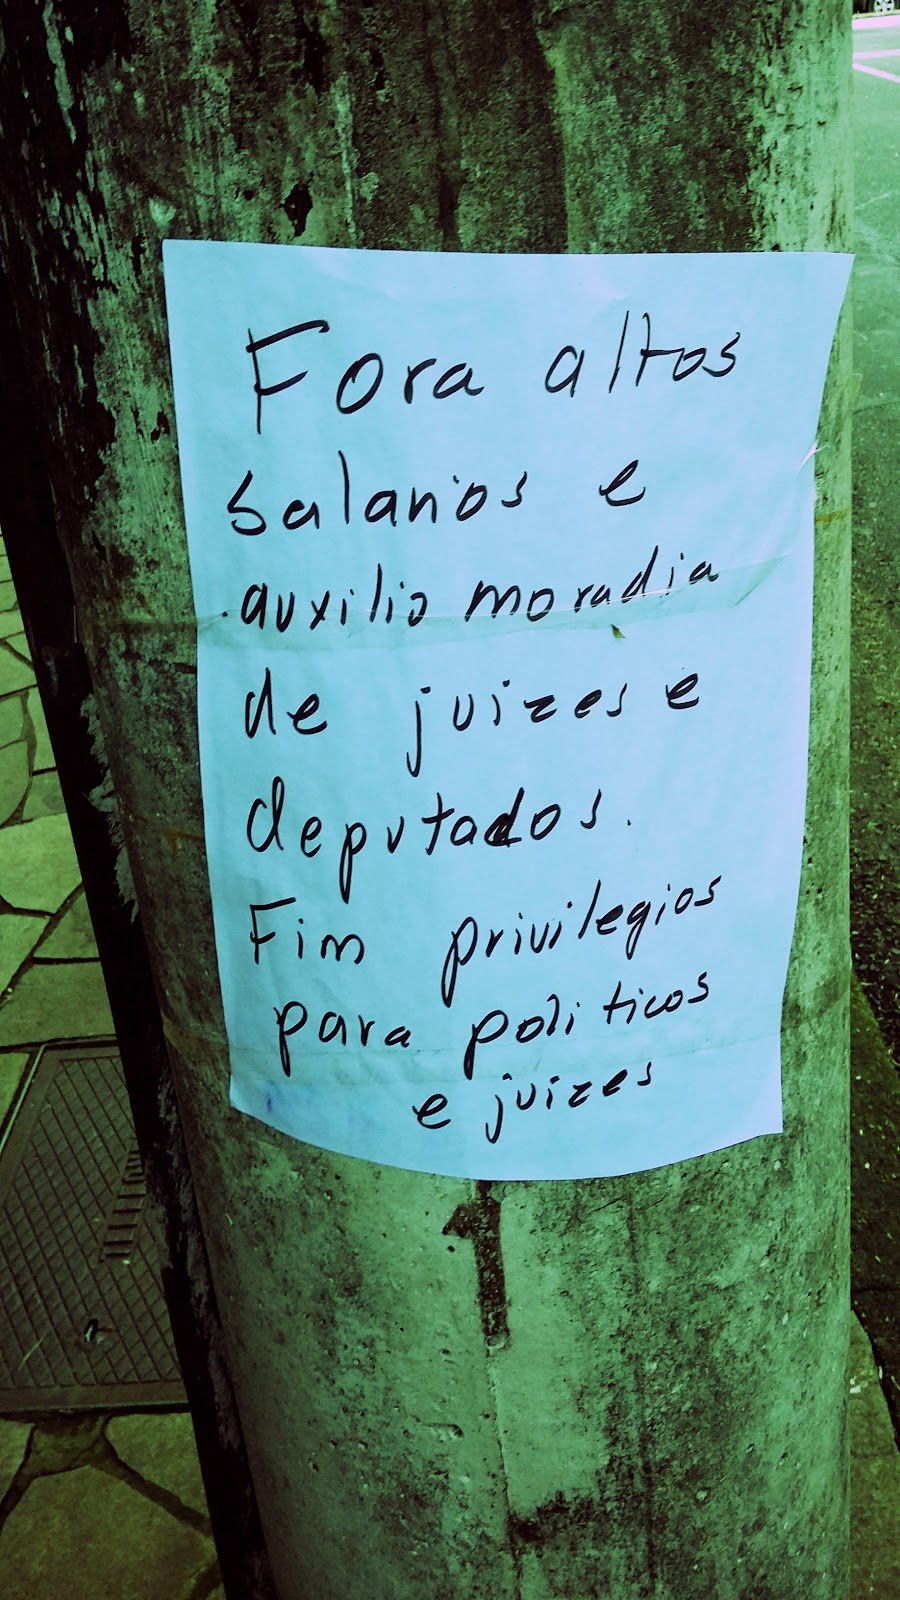 Fora altos
salarios e
auxilio moradia
de juizes e
deputados.
Fim privilegios
para politicos
e juizes